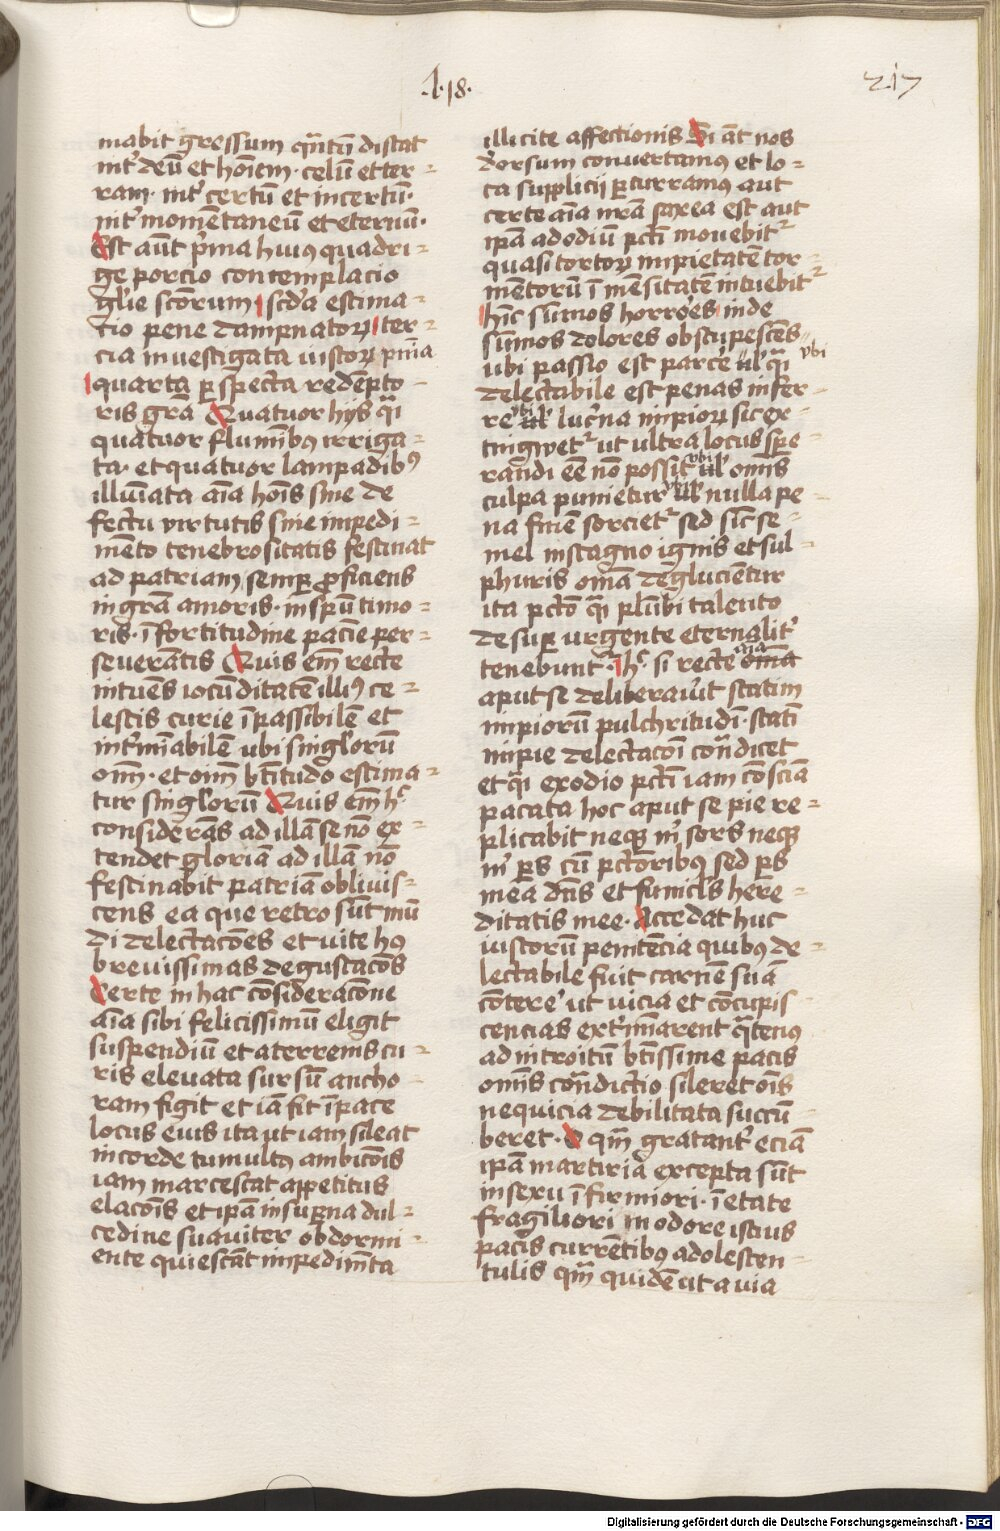 .A.18.
217
mabit gressum qᷓntũ distat
int᷑ deũ et hoı̃em · celũ et ter=
ram · int᷑ certũ et incertũ·
int᷑ momẽtaneũ et eternũ·
Est aũt p̃ma huiꝰ quadri=
ge porcio contemplacio
gl̃ie sc̃orum scd̃a estima=
tio pene dampnatoꝝ ter=
cia inuestigata iustoꝝ pnı̃a
quarta ꝑspecta redẽpto
ris gr̃a Quatuor hijs qᷓı
quatuor flumı̃bꝰ irriga=
ta · et quatuor lampadibꝰ
illuı̃ata aı̃a hoı̃s sine de
fectu virtutis sine impedi=
mẽto tenebrositatis festinat
ad patriam semꝑ ꝓficiens
in gr̃a amoris · in sp̃u timo=
ris · ı̃ fortitudine pacı̃e per=
seuerãtis Quis em̃ recte
intuẽs iocũditatẽ illiꝰ ce=
lestis curie ı̃passibilẽ et
int᷑mı̃abilẽ ubi singl̃orũ
om̃ · et oı̃m bt̃itudo estima=
tur singl̃orũ Quis em̃ hᷦ
considerãs ad illã se nõ ex=
tendet gloriã ad illã nõ
festinabit patriã obliuis=
cens ea que retro sũt mũ
di delectacões et uite hꝰ
breuissimas degustacõs
Certe in hac cõsideracõne
aı̃a sibi felicissimũ eligit
suspendiũ et a terrenis cu=
ris eleuata sursũ ancho=
ram figit et iã fit ı̃ pace
locus eius ita ut iam sileat
in corde tumultꝰ ambicõis
iam marcescat appetitus
elacõis et ip̃am in suꝑna dul=
cedine suauiter obdormi=
ente quiescãt impedimẽta
illicite affectionis Si aũt nos
deorsum conuertamꝰ et lo=
ca supplicij ꝑcurramꝰ aut
certe aı̃a nr̃a saxea est aut
ip̃a ad odiũ pct̃i mouebit᷑
quasi tortoꝝ impietatẽ tor=
mẽtorũ ı̃mẽsitatẽ intuebit᷑
hı̃c sũmos horrores inde
sũmos dolores obstupescẽs
ubi passio est parcere ul̃ qᷓı ubi
delectabile est penas infer=
re ubi ul̃ lucerna impioꝝ sic ex=
tingwet᷑ ut ultra locus spe=
randi eẽ nõ possit ubi ul̃ omı̃s
culpa punietur ubi ul̃ nulla pe=
na finẽ sorciet᷑ sed sic se=
mel in stagno ignis et sul=
phuris om̃a deglucientur
ita pct̃o qᷓı plũbi talento
desuꝑ urgente eternalit᷑
tenebunt᷑ hᷦ si recte aı̃a om̃a
aput se deliberauı̃t statim
impiorũ pulchritudı̃· stati
impie delectacõı cõᷓdicet
et qᷓı ex odio pct̃i iam cõsciã
pacata hoc aput se pie re=
plicabit neqꝫ m᷑ sors neqꝫ
m᷑ ꝑs cũ pct̃oribꝰ sed ꝑs
mea dñs et funicl̃s here=
ditatis mee · Accedat huc
iustorũ penitẽcia quibꝰ de=
lectabile fuit carnẽ suã
cõterere ut uicia et cõcupis=
cencias ext᷑mı̃arent qᷓtenꝰ
ad introitũ bt̃issime pacis
omı̃s cõᷓdictio sileret oı̃s
nequicia debilitata succũ=
beret · O qm̃ gratant᷑ eciã
ip̃a martiria excepta sũt
in sexu ı̃firmiori · ı̃ etate
fragiliori in odore istius
pacis currẽtibꝰ adolescen=
tulis qm̃ quidẽ ut a uia
Digitalisierung gefördert durch die Deutsche Forschungsgemeinschaft - DFG